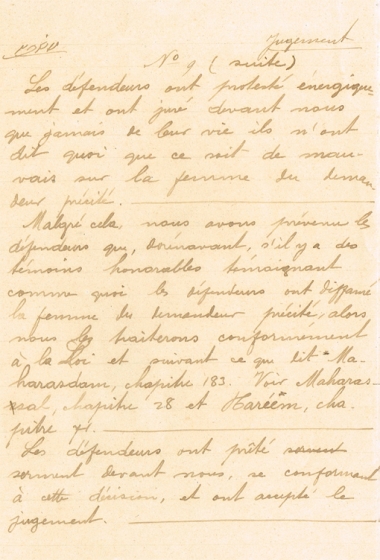 Jugement
No 9 (suite)
Les défendeurs ont protesté énergique-
ment et ont juré devant nous
que jamais de leur vie ils n'ont
dit quoi que ce soit de mau-
vais sur la femme du deman-
deur précité.
Malgré cela, nous avons prévenu les
défendeurs que, dorénavant, s'il y a des
témoins honorables témoignant
comme quoi les défendeurs ont diffamé
la femme du demandeur précité, alors
nous les traiterons conformément
à la Loi et suivant ce que dit Ma-
harasdam, chapitre 183. Voir Maharas-
sal, chapitre 28 et Haréëm, cha-
pitre
Les défendeurs ont prêté serment
serment devant nous, se conformant
à cette décision, et ont accepté le
jugement.